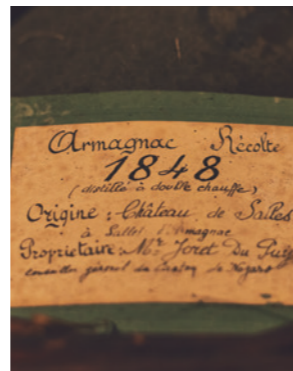 Armagnac Récolte
1848
(distillé à double chauffe)
Origine : Château de Salles
à Salles d'Armagnac
Propriétaire : Mr Joret Du Puy
conseiller général du Canton de Nogaro